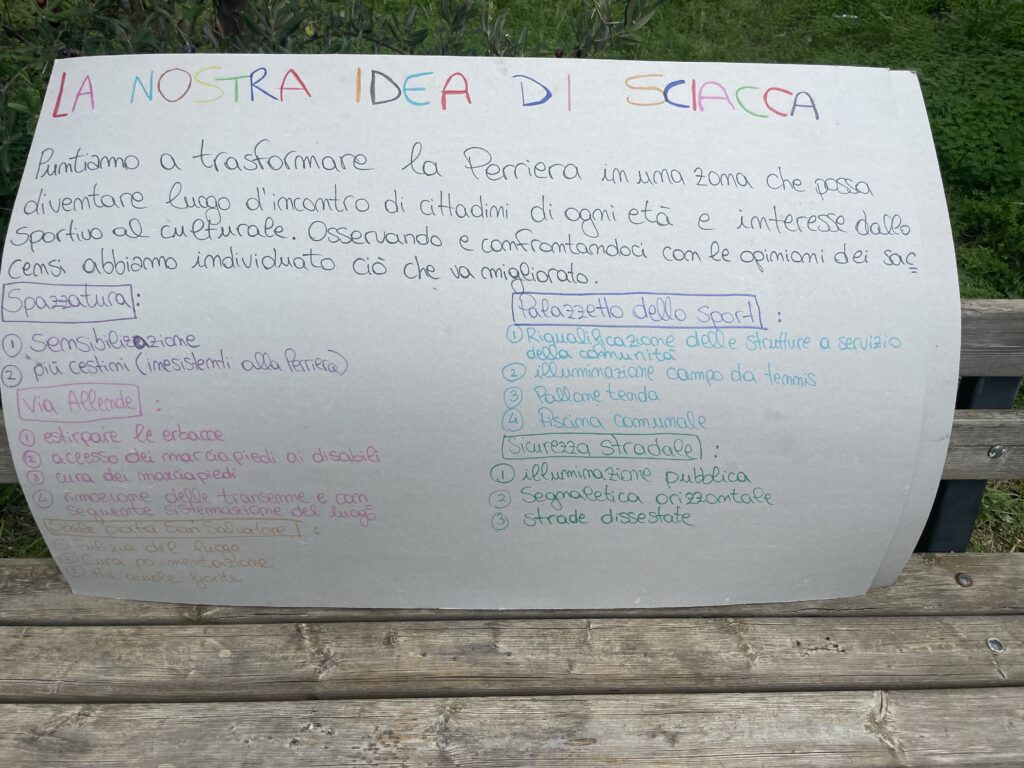 LA NOSTRA IDEA DI SCIACCA
Puntiamo a trasformare la Perriera in una zona che possa
diventare luogo d'incontro di cittadini di ogni età e interesse dallo
sportivo al culturale. Osservando e confrontandoci con le opinioni dei sac
censi abbiamo individuato ciò che va migliorato.
Spazzatura:
1 Sensibilizzazione
2 più cestini (inesistenti alla Perriera)
Via Allende:
1 estirpare le erbacce
2 accesso dei marciapiedi ai disabili
3 cura dei marciapiedi
4 rimozione delle transenne e con
seguente sistemazione del luogo
Porta San Salvatore:
1 Pulizia del luogo
2 Cura pavimentazione
3 aiuole
Palazzetto dello sport:
1 Riqualificazione delle strutture a servizio
della comunità
2 illuminazione campo da tennis
3 Pallone tenda
4 Piscina comunale
Sicurezza stradale:
1 illuminazione pubblica
2 Segnaletica orizzontale
3 strade dissestate